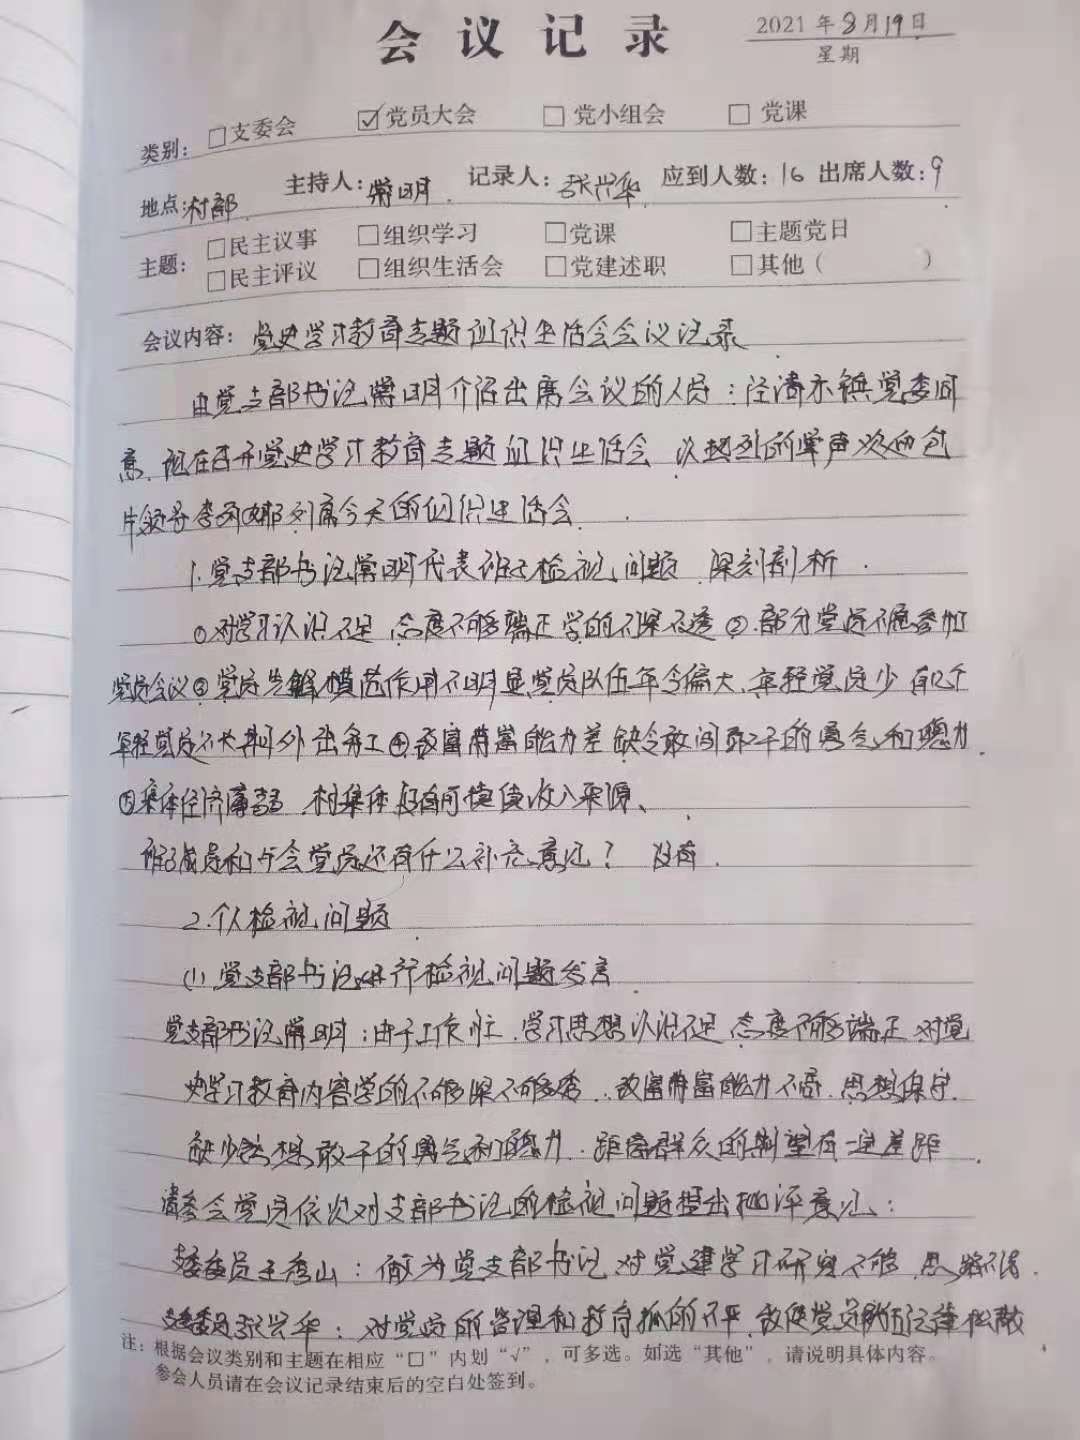 会议记录
2021年8月19日
星期
类别： □支委会 ☑党员大会 □党小组会 □党课
地点：村部 主持人：常明 记录人：张兴华 应到人数：16 出席人数：9
主题： □民主议事 □组织学习 □党课 □主题党日
□民主评议 □组织生活会 □党建述职 □其他（ ）
会议内容：党史学习教育专题组织生活会会议记录
由党支部书记常明介绍出席会议的人员：经清水镇党委同
意，现在召开党史学习教育专题组织生活会 以热烈的掌声欢迎包
片领导李 娜列席今天的组织生活会
1.党支部书记常明代表班子检视问题 深刻剖析.
①对学习认识不足 态度不够端正 学的不深不透②.部分党员不愿参加
党员会议③党员先锋模范作用不明显党员队伍年令偏大、年轻党员少 有几个
年轻党员还长期外出务工④致富带富能力差 缺令敢闯敢干的勇气和魄力.
⑤集体经济薄弱.村集体没有可持续收入来源、
班子成员和与会党员还有什么补充意见？ 没有.
2.个人检视问题
(1)党支部书记进行检视问题发言
党支部书记常明：由于工作忙.学习思想认识不足 态度不够端正 对党
史学习教育内容学的不够深不够透.致富带富能力不高.思想保守.
缺少敢想敢干的勇气和魄力.距离群众的期望有一定差距.
请参会党员依次对支部书记的检视问题提出批评意见：
支委委员王秀山：做为党支部书记对党建学习研究不够.思路不清.
支委委员张兴华：对党员的管理和教育抓的不平.致使党员队伍纪律松散
注：根据会议类别和主题在相应“□”内划“√”，可多选。如选“其他”，请说明具体内容。
参会人员请在会议记录结束后的空白处签到。